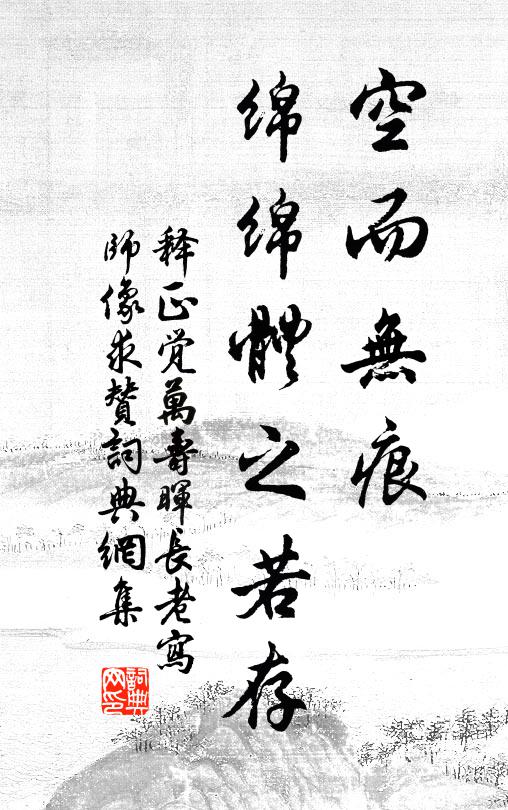 空而無痕
绵绵體之若存
释正觉萬壽暉長老寫
師像求賛詞典網集
詞典网印